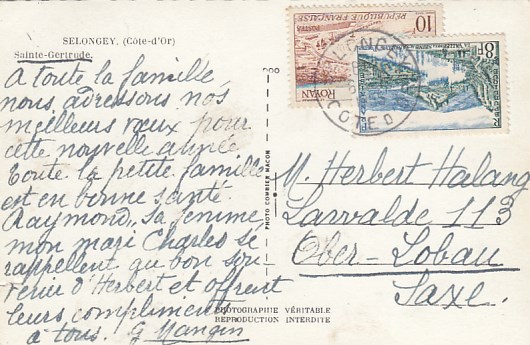 SELONGEY. (Côte-d'Or)
Sainte-Gertrude.
A toute la famille
nous adressons nos
meilleurs vœux pour
cette nouvelle année
Toute la petite famille
est en bonne santé
Raymond, sa femme
mon mari Charles se
rappellent au bon sou
venir d'Herbert et offrent
leurs compliments
à tous. G Mangin
PHOTO COMBIER MACON
PHOTOGRAPHIE VÉRITABLE
REPRODUCTION INTERDITE
POSTES
10F
RÉPUBLIQUE FRANÇAISE
ROYAN
8F
SELONGEY
COTE D
M. Herbert Halang
Larvalde 113
Ober-Lobau
Saxe.